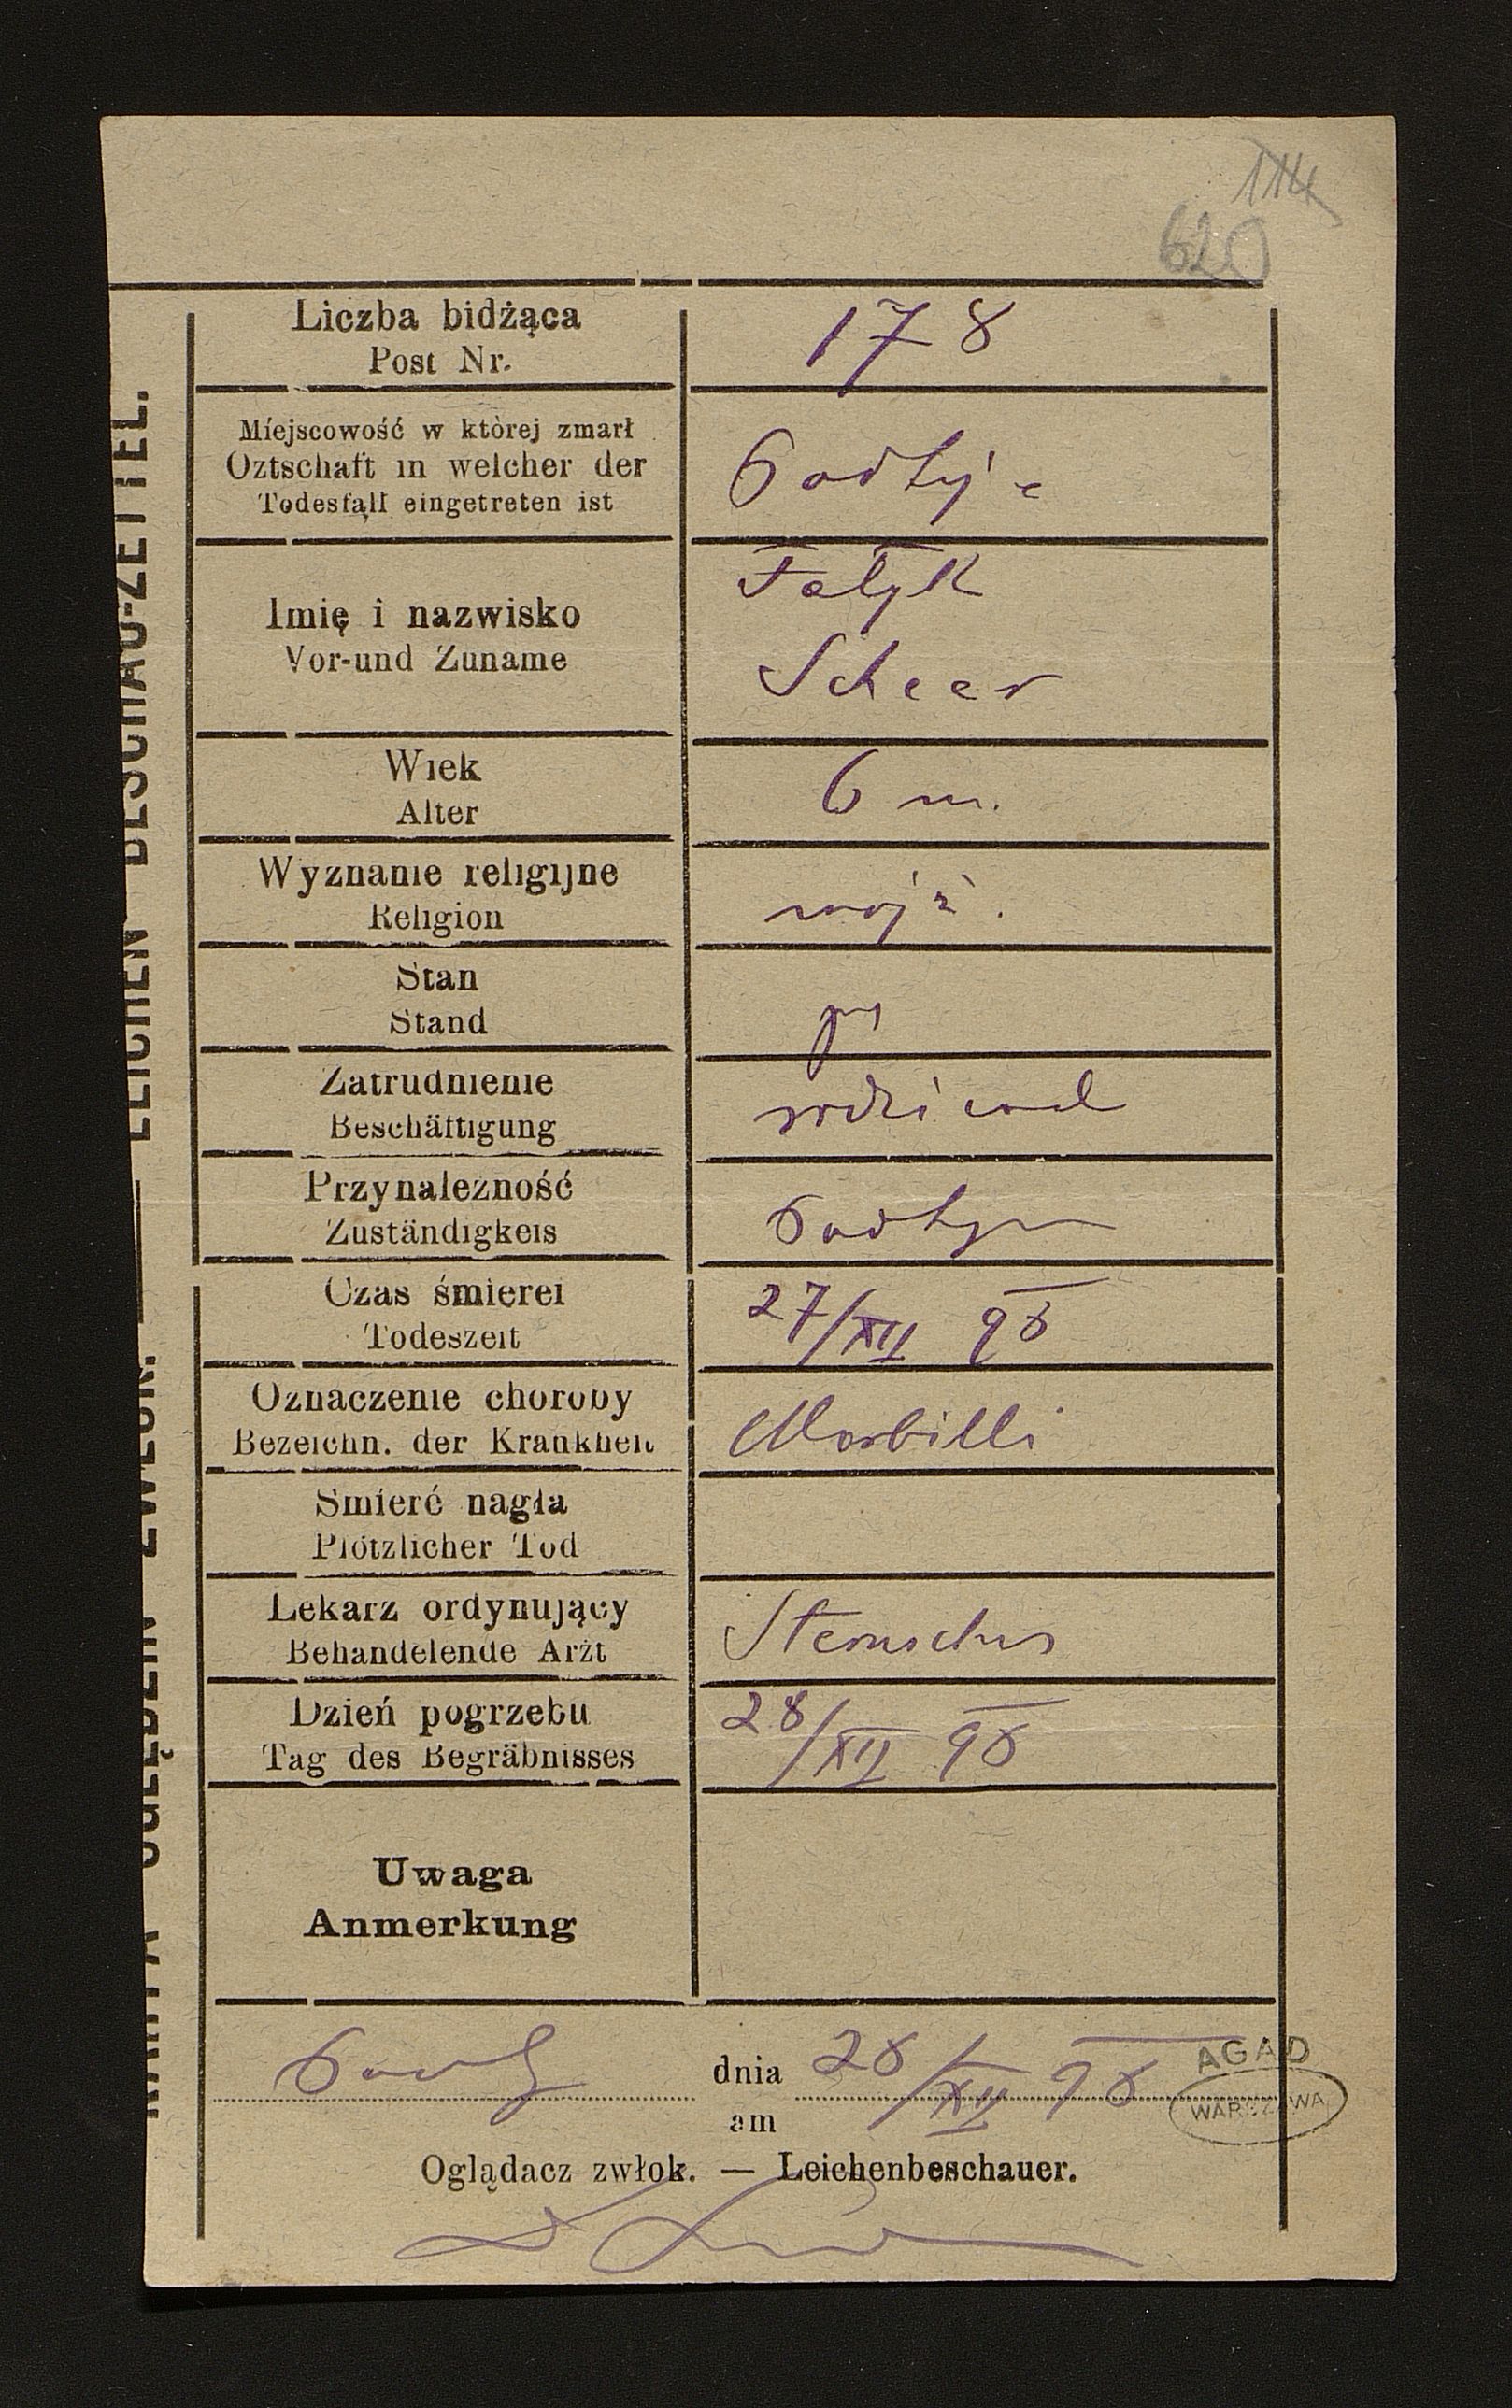 114
620
KARTA OGLĘDZIN ZWŁOK. — LEICHEN-BESCHAU-ZETTEL.
Liczba bidżąca
Post Nr.
178
Miejscowość w której zmarł
Oztschaft in welcher der
Todesfąll eingetreten ist
Imię i nazwisko
Vor-und Zuname
Falyk
Scheer
Wiek
Alter
6 m.
Wyznanie religijne
Religion
mojż.
Stan
Stand
Zatrudnienie
Beschäftigung
Przynalezność
Zuständigkeis
Czas śmierei
Todeszeit
27/XII 98
Oznaczenie choroby
Bezeichn. der Krankheit
Morbilli
Smierć nagła
Plötzlicher Tod
Lekarz ordynujący
Behandelende Arżt
Dzień pogrzebu
Tag des Begräbnisses
28/XII 98
Uwaga
Anmerkung
dnia 28/XII 98
am
AGAD
WARSZAWA
Oglądacz zwłok. — Leichenbeschauer.